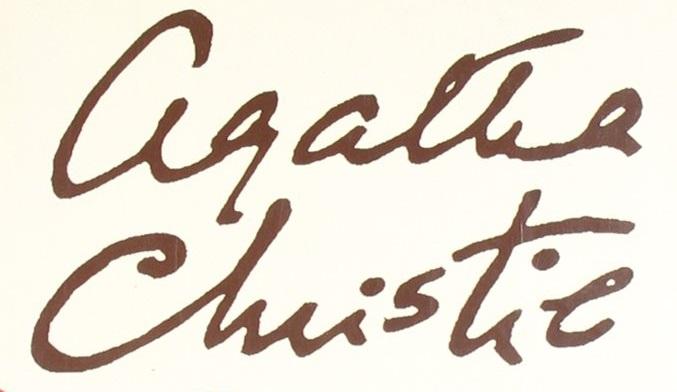 Agatha
Christie